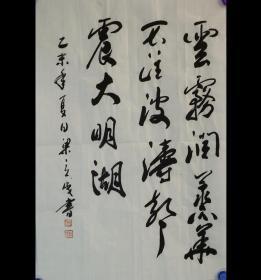 雲霧潤蒸華
不注波濤聲
震大明湖
乙未年夏日梁文俊書